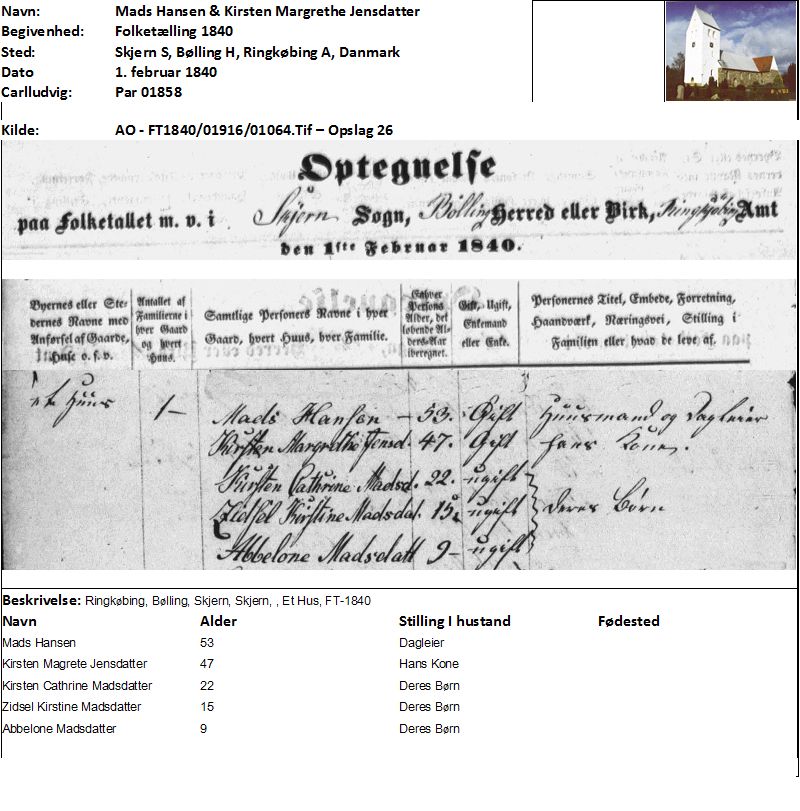 Navn: Mads Hansen & Kirsten Margrethe Jensdatter
Begivenhed: Folketælling 1840
Sted: Skjern S, Bølling H, Ringkøbing A, Danmark
Dato 1. februar 1840
Carlludvig: Par 01858
Kilde: AO - FT1840/01916/01064.Tif – Opslag 26
Optegnelse
paa Folketallet m. v. i Skjern Sogn, Bølling Herred eller Birk, Ringkjøbing Amt
den 1ste Februar 1840.
Byernes eller Ste-
dernes Navne med
Anførsel af Gaarde,
Huse o. s. v.
Antallet af
Familierne i
hver Gaard
og hvert
Huus.
Samtlige Personers Navne i hver
Gaard, hvert Huus, hver Familie.
Enhver
Persons
Alder, det
løbende Al-
ders-Aar
iberegnet.
Gift, Ugift,
Enkemand
eller Enke.
Personernes Titel, Embede, Forretning,
Haandværk, Næringsvei, Stilling i
Familien eller hvad de leve af.
et Huus 1 – Mads Hansen – 53. Gift Huusmand og Dagleier
Kirsten Margrethe Jensd. 47. Gift hans Kone.
Kirsten Cathrine Madsd. 22. ugift
Zidsel Kirstine Madsdat. 15 ugift deres Børn
Abbelone Madsdatt 9 – ugift
Beskrivelse: Ringkøbing, Bølling, Skjern, Skjern, , Et Hus, FT-1840
Navn Alder Stilling I hustand Fødested
Mads Hansen 53 Dagleier
Kirsten Magrete Jensdatter 47 Hans Kone
Kirsten Cathrine Madsdatter 22 Deres Børn
Zidsel Kirstine Madsdatter 15 Deres Børn
Abbelone Madsdatter 9 Deres Børn